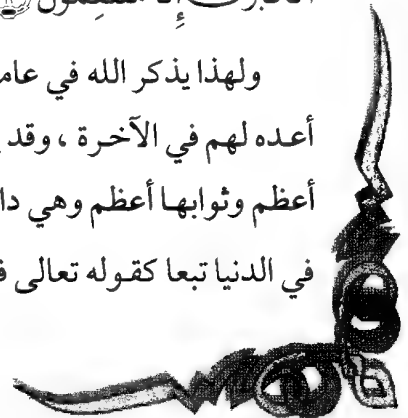 إنا منتقمون
ولهذا يذكر الله في عام
أعده لهم في الآخرة ، وقد
أعظم وثوابها أعظم وهي دا
في الدنيا تبعا كقوله تعالى ف